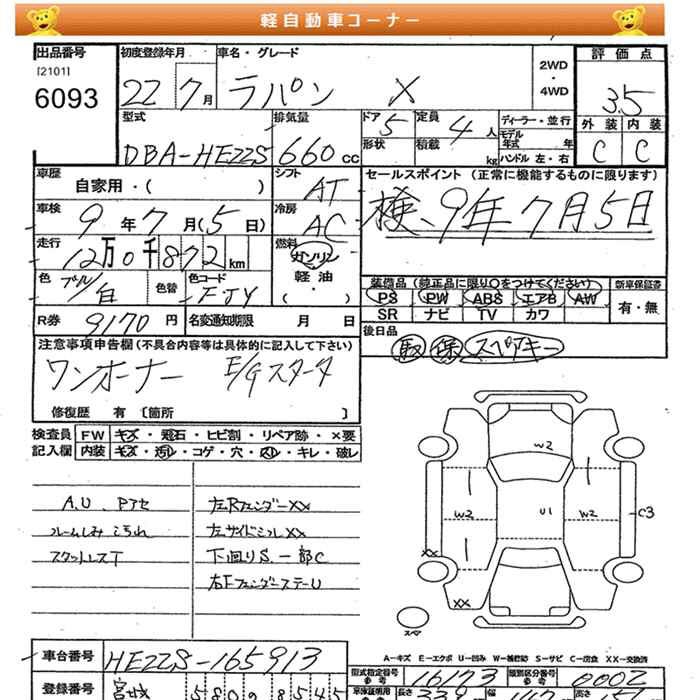 軽自動車コーナー
出品番号 初度登録年月 車名・グレード 2WD・4WD 評価点
[2101]
6093
22 7月 ラパン X 3.5
型式 排気量 ドア 5 定員 4人 ディーラー・並行 外装 内装
形状 積載 kg モデル年式 年
DBA-HE22S 660cc ハンドル 左・右 C C
車歴 自家用・( ) シフト AT セールスポイント (正常に機能するものに限ります)
車検 9年7月(5日) 冷房 AC 検、9年7月5日
走行 12万0千872km 燃料 ガソリン
軽油
( )
色 ブルー/白 色替 色コード FJY 装備品(純正品に限り○をつけてください) 新車保証書
PS PW ABS エアB AW 有・無
SR ナビ TV カワ
R券 9170円 名変通知期限 月 日 後日品
取 保 スペアキー
注意事項申告欄(不具合内容等は具体的に記入して下さい)
ワンオーナー E/Gスターター
修復歴 有 〔箇所 〕
検査員 FW キズ・飛石・ヒビ割・リペア跡・×要
記入欄 内装 キズ・汚レ・コゲ・穴・スレ・キレ・破レ
A.U. Pアセ 左Rフェンダー××
ルームしみ こげれ 左サイドシル××
スタットレスT 下回りS.一部C
右FフェンダーステーU
W2
W2 U1 W2 C3
××
××
スペア
A-キズ E-エクボ U-凹み W-補修跡 S-サビ C-腐食 XX-交換済
車台番号 HE22S-165913 型式指定番号 16173 類別区分番号 0002
登録番号 宮城 580 8545 車庫証明用参考 長さ 339 幅 147 高さ